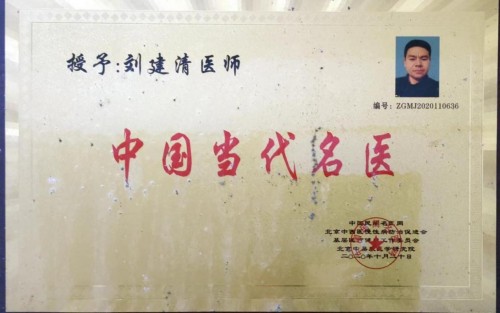 授予:刘建清医师
编号:ZGMJ2020110636
中国当代名医
中国民间名医网
北京中西医慢性病防治促进会
基层医疗健康工作委员会
二〇二〇年十月二十日